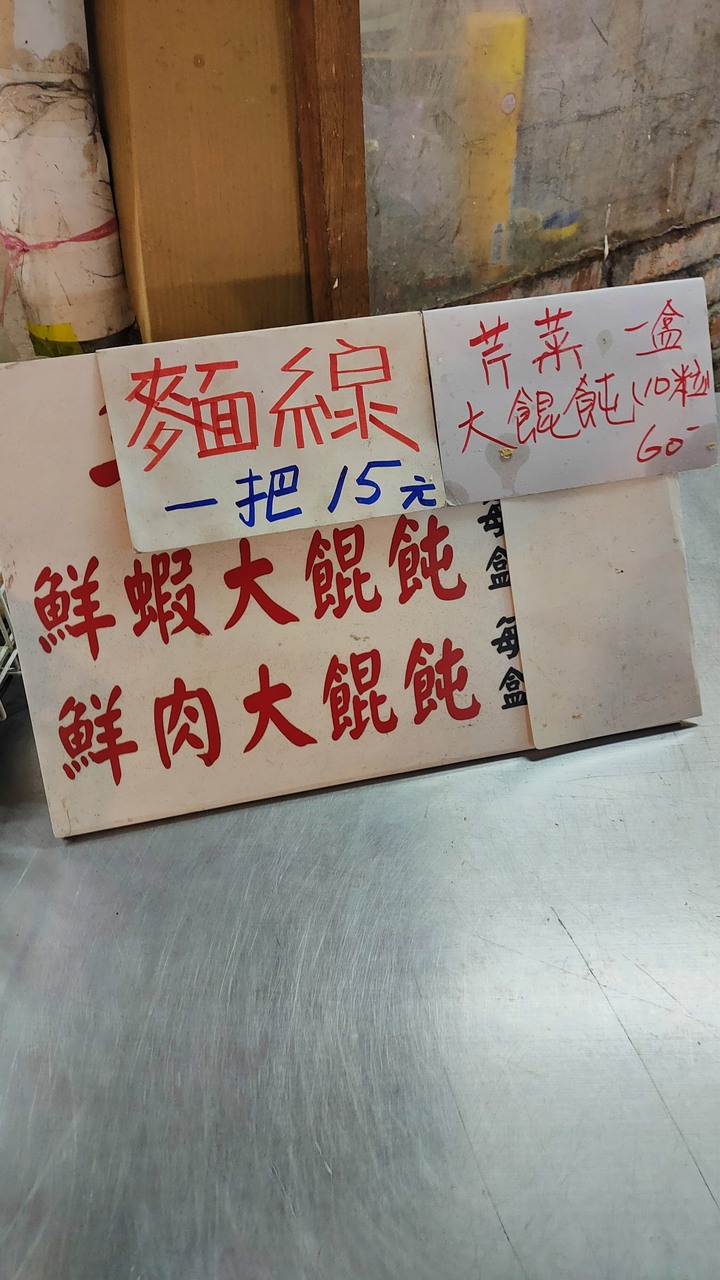 麵線
一把 15元
芹菜 一盒
大餛飩(10粒)
60-
鮮蝦大餛飩 每盒
鮮肉大餛飩 每盒